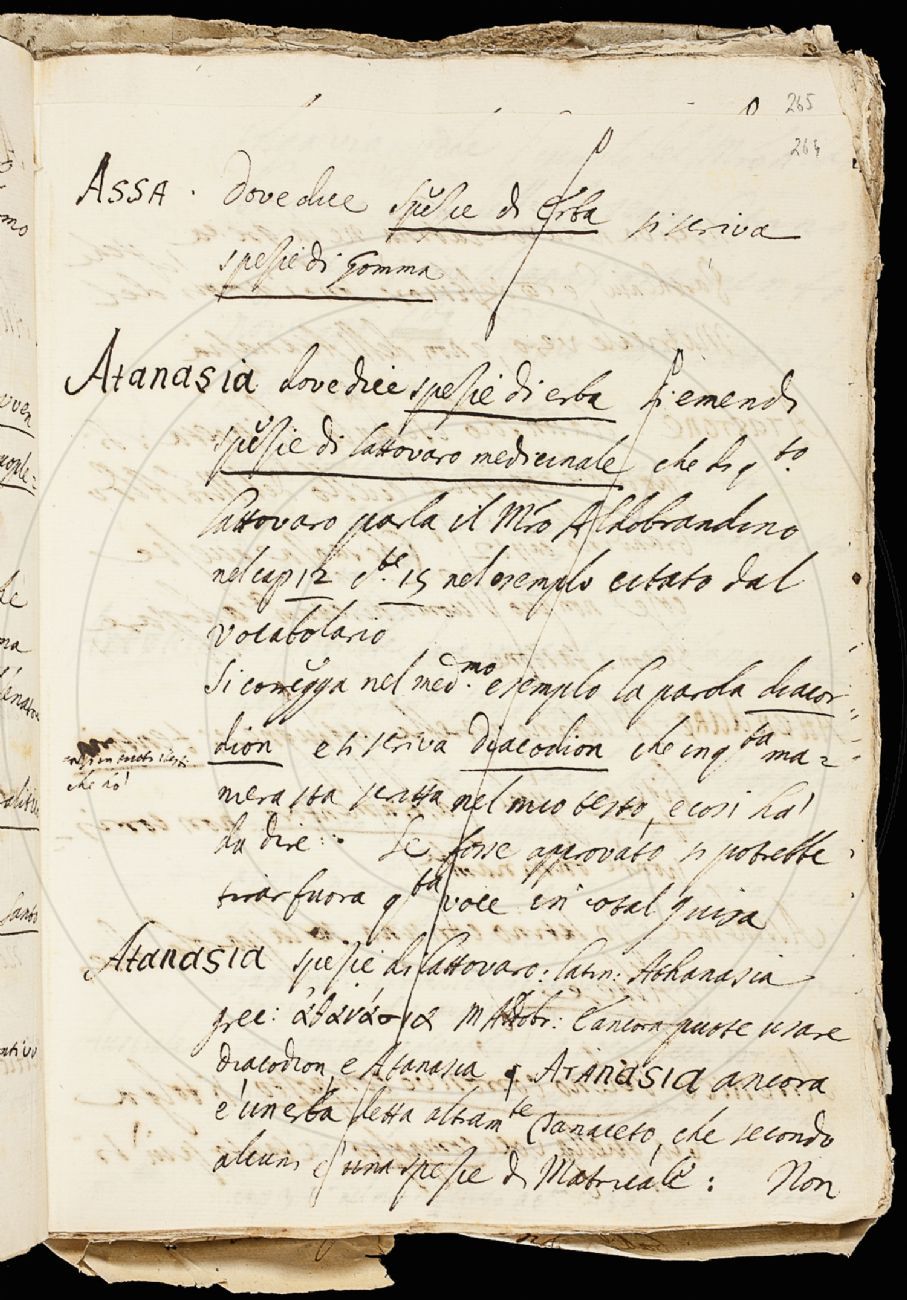 265
264
ASSA. Dove dice spezie di erba si scriva
spezie di Gomma
Atanasia dove dice spezie di erba si emendi
spezie di lattovaro medicinale che di q.to
lattovaro parla il Mro Aldobrandino
nel cap 12 e 15 nel esemplo citato dal
vocabolario
Si corregga nel med.mo esemplo la parola diacor=
dion e si scriva Diacodion che in q.ta ma=
niera sta scritta nel mio testo, e così ha
da dire. Se fosse approvato si potrebbe
che hò
tirar fuora q.ta voce in cotal guisa
Atanasia spezie di lattovaro: latin: Athanasia
grec: ἀθανάσια M Aldobr: E ancora puote usare
Diacodion, e Atanasia ATANASIA ancora
è un erba detta altram.te Tanaceto, che secondo
alcuni è una spezie di Matricale: Non